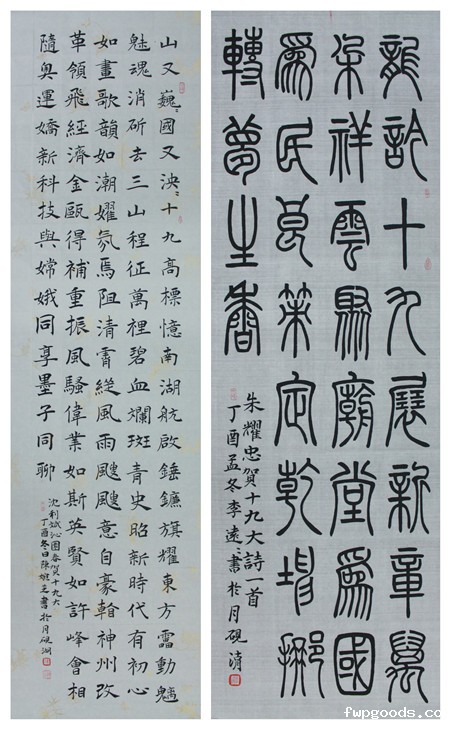 龍訡十九展新章萬
朵祥雲聚廟堂為國
為民良策定乾坤挪
轉夢生香
朱耀忠賀十九大詩一首
丁酉孟冬李遠書於月硯清
山又巍〻國又泱〻十九高標憶南湖航啟錘鐮旗耀東方靁動魑
魅魂消斫去三山程征萬裡碧血斕斑青史昭新時代有初心
如畫歌韻如潮氛焉阻清霄縱風雨意自豪翰神州改
革領飛經濟金甌得補重振風騷偉業如斯英賢如許峰會相
隨奧運嬌新科技與嫦娥同享墨子同聊
沈利斌沁園春賀十九大
丁酉冬日陳玉書於月硯湖
fwpgoods.com